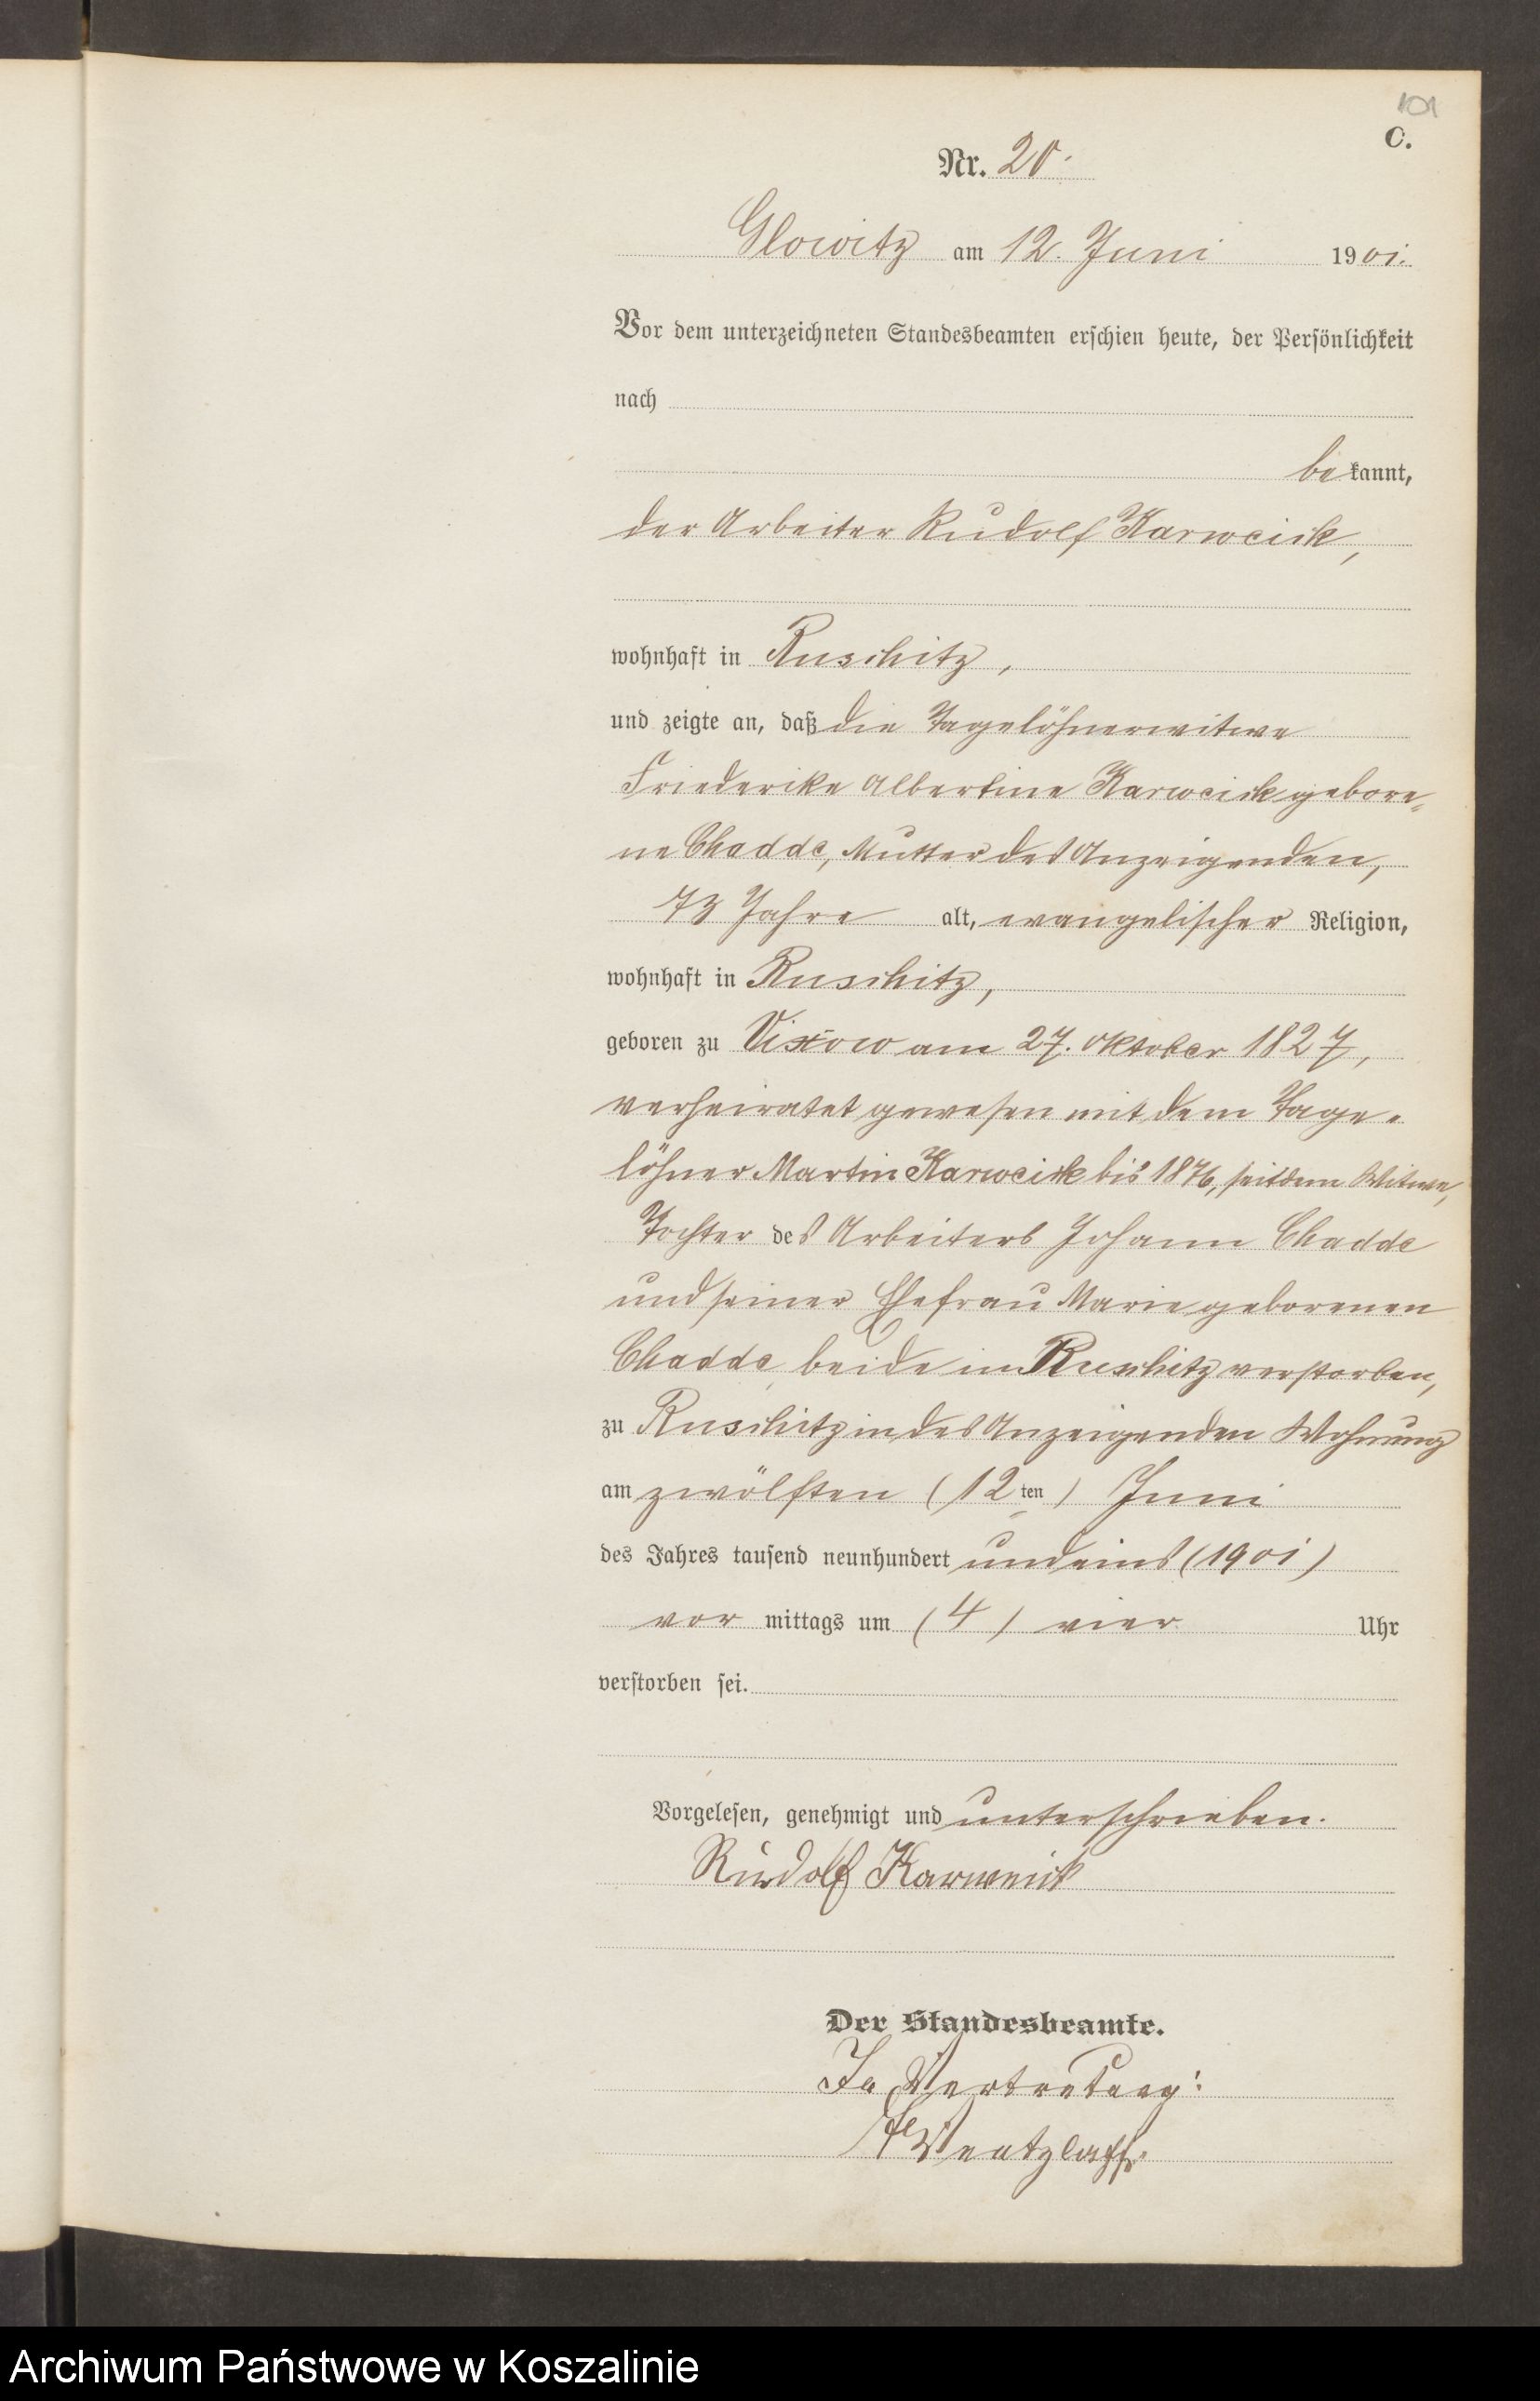 101
C.
Nr. 20.
Glowitz am 12. Juni 1901.
Vor dem unterzeichneten Standesbeamten erschien heute, der Persönlichkeit
nach
bekannt,
der Arbeiter Rudolf Karwcick,
wohnhaft in Ruschitz,
und zeigte an, daß die Tagelöhnerwitwe
Friederike Albertine Karwcick gebore-
ne Chadde, Mutter des Anzeigenden,
73 Jahre alt, evangelischer Religion,
wohnhaft in Ruschitz,
geboren zu Vixow am 27. Oktober 1827,
verheiratet gewesen mit dem Tage-
löhner Martin Karwcick bis 1876, seitdem Witwe,
Tochter des Arbeiters Johann Chadde
und seiner Ehefrau Marie geborenen
Chadde, beide in Ruschitz verstorben,
zu Ruschitz in des Anzeigenden Wohnung
am zwölften (12ten) Juni
des Jahres tausend neunhundert und eins (1901)
vor mittags um (4) vier Uhr
verstorben sei.
Vorgelesen, genehmigt und unterschrieben.
Rudolf Karwcick
Der Standesbeamte.
In Vertretung:
Wentzlaff.
Archiwum Państwowe w Koszalinie